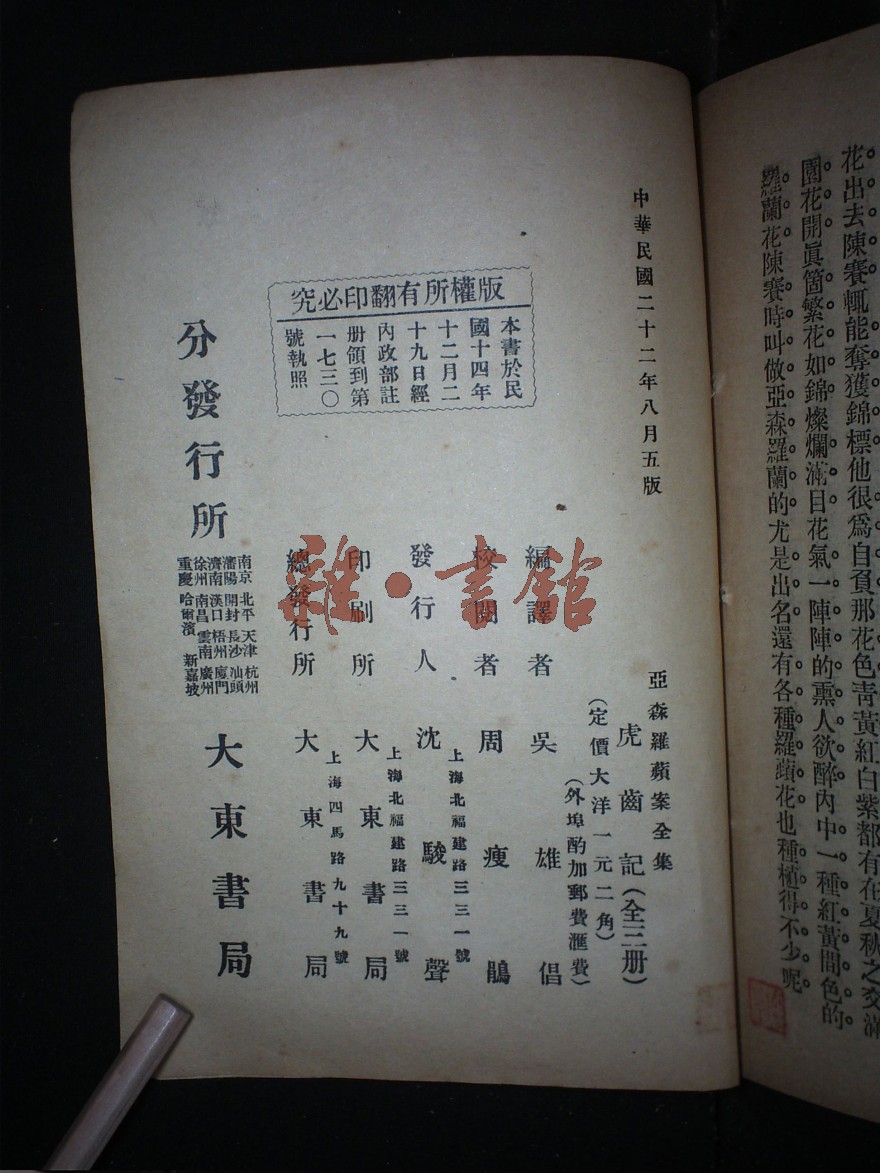 花出去陳賽輒能奪獲錦標他很爲自負那花色靑黃紅白紫都有在夏秋之交滿
園花開眞箇繁花如錦燦爛滿目花氣一陣陣的熏人欲醉內中一種紅黃間色的
羅蘭花陳賽時叫做亞森羅蘭的尤是出名還有各種羅蘋花也種植得不少呢
中華民國二十二年八月五版
亞森羅蘋案全集
虎齒記(全三册)
(定價大洋一元二角)
(外埠酌加郵費滙費)
編譯者 吳雄倡
校閱者 周瘦鵑
發行人 沈駿聲
上海北福建路三三一號
印刷所 大東書局
上海北福建路三三一號
總發行所 大東書局
上海四馬路九十九號
分發行所 大東書局
南京 北平 天津 杭州
瀋陽 開封 長沙 汕頭
濟南 漢口 梧州 廈門
徐州 南昌 雲南 廣州
重慶 哈爾濱 新嘉坡
版權所有翻印必究
本書於民
國十四年
十二月二
十九日經
內政部註
册領到第
一七三〇
號執照
雜·書館